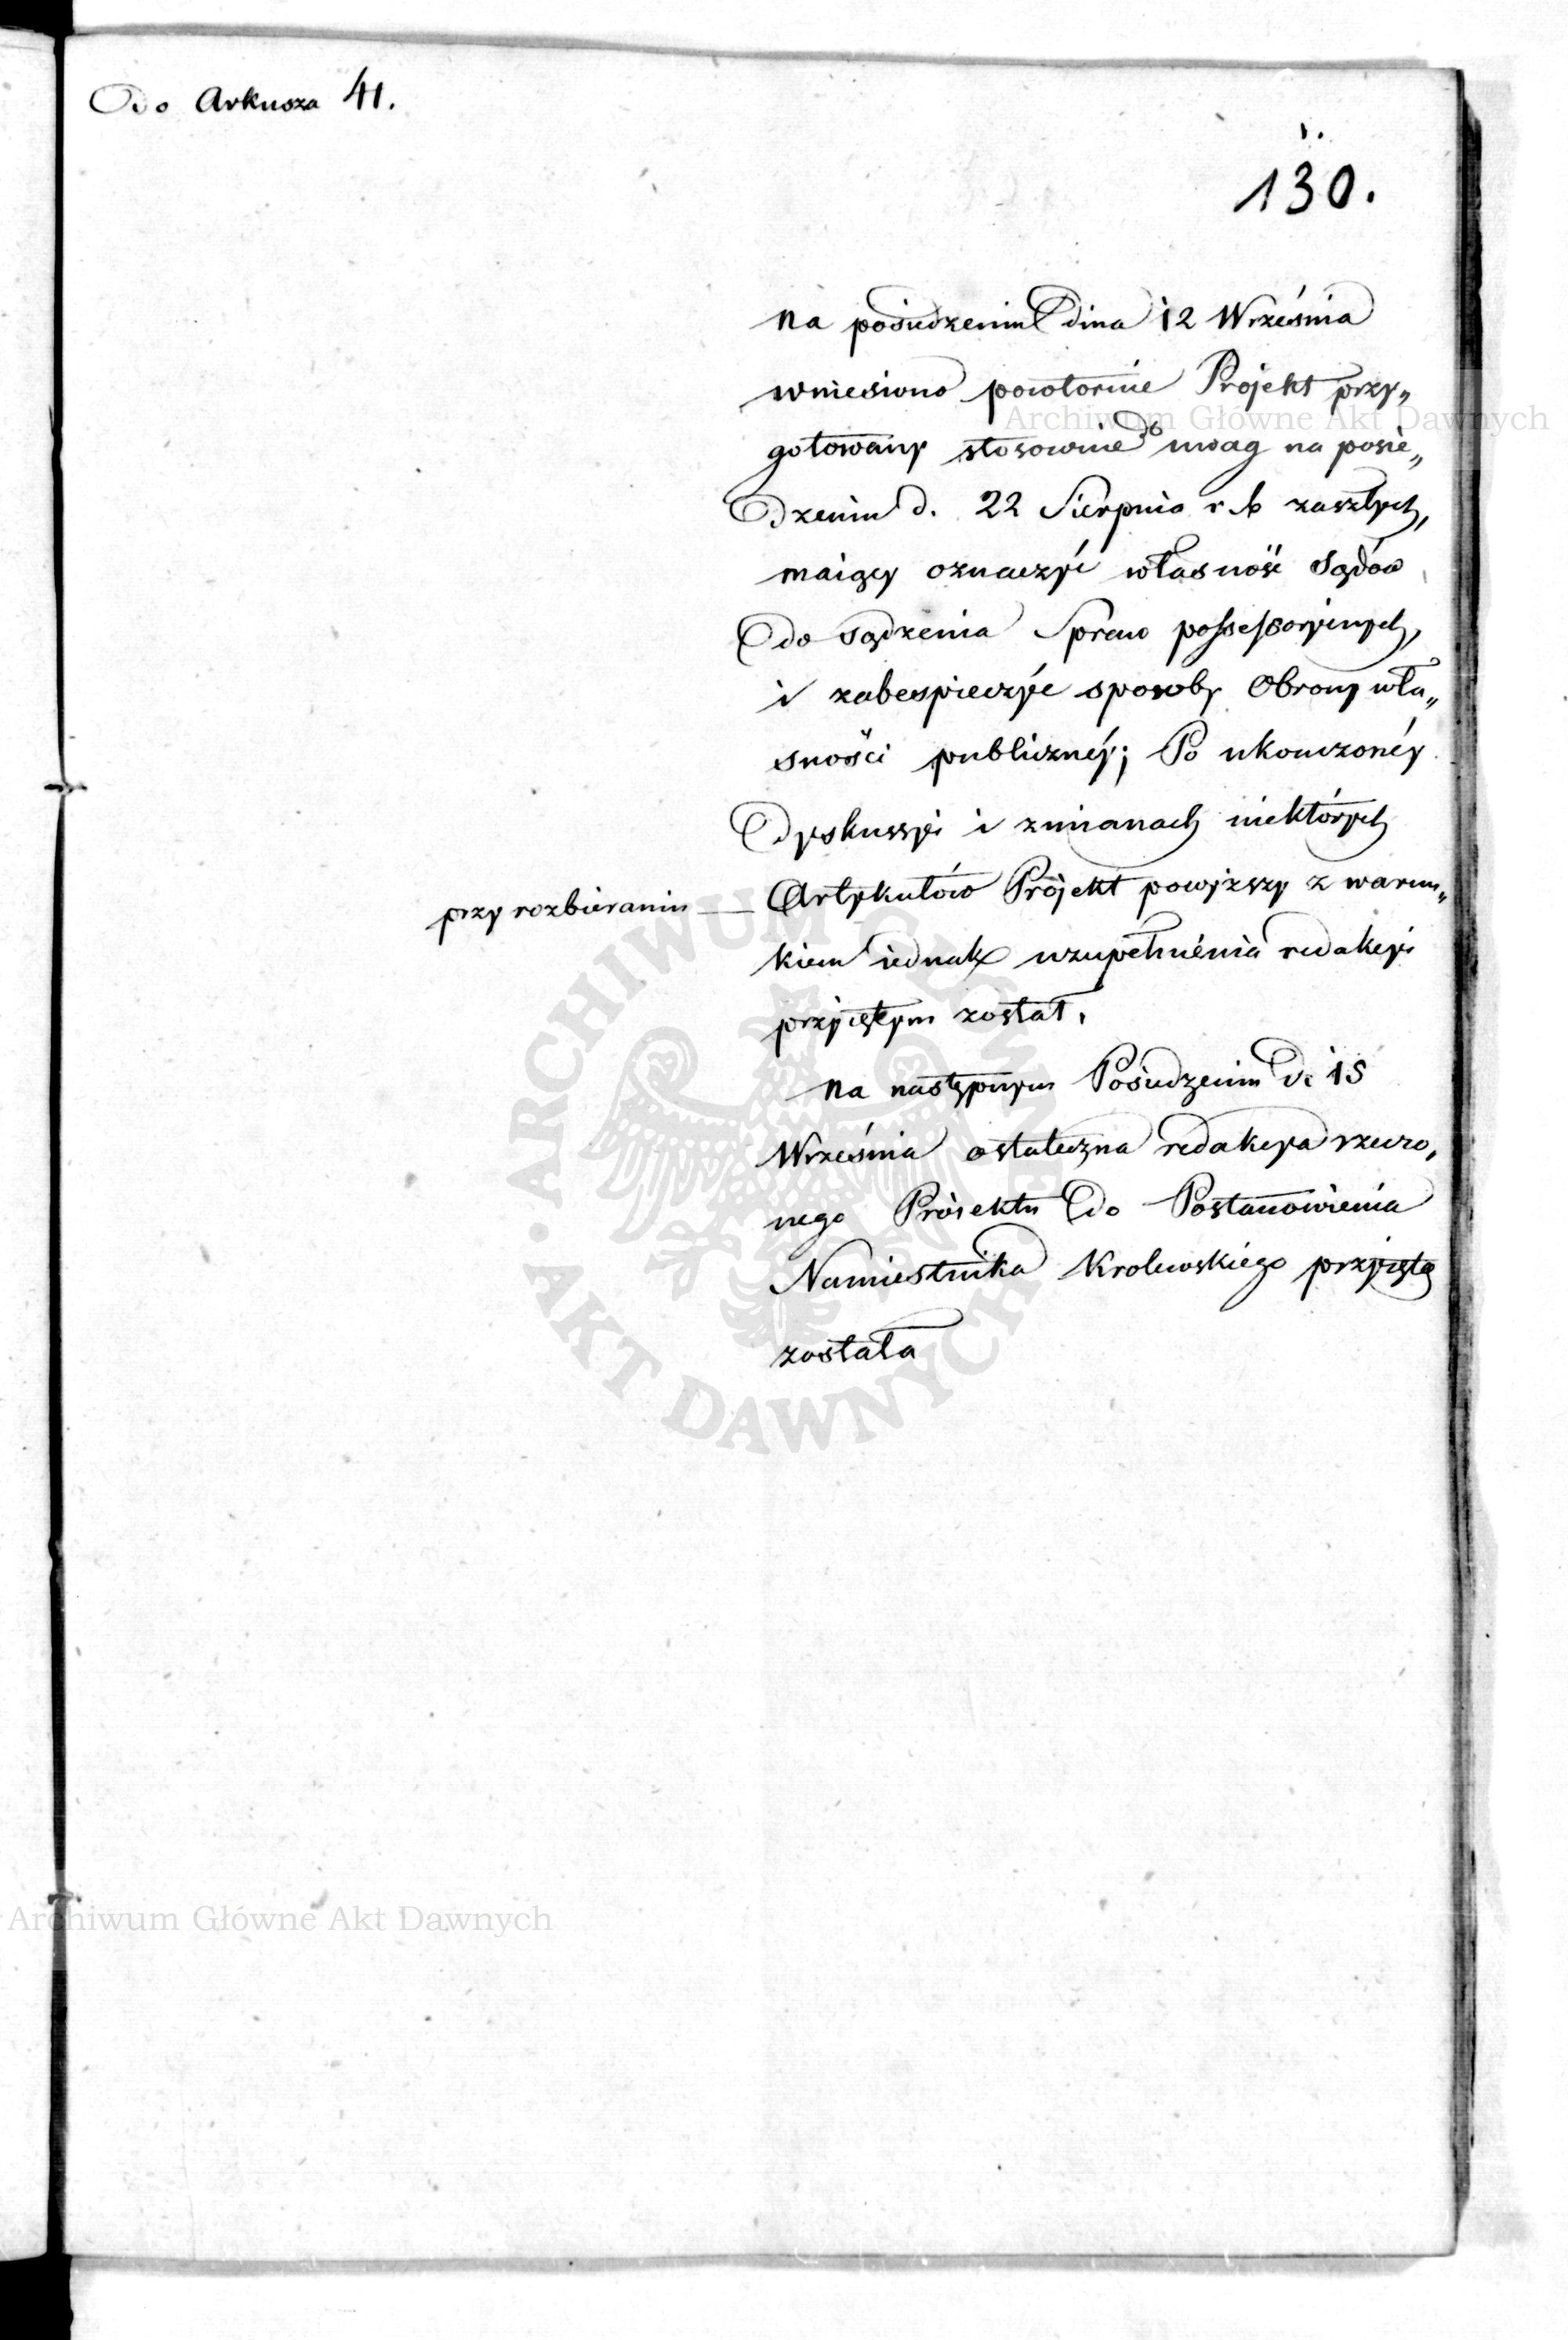 Do Arkusza 41.
1.
130.
Na posiedzeniu dnia 12 Września
wniesiono powtornie Projekt przy„
gotowany stosownie do uwag na posie„
dzeniu d. 22 Sierpnia r. b. zaszłych,
maiący oznaczyć własność Sądów
do sądzenia Spraw possessoryinych,
i zabespieczyć sposoby Obrony wła„
sności publicznéy; Po ukonczonéy
dyskussyi i zmianach niektórych
przy rozbieraniu — Artykułów Projekt powyższy z warun„
kiem iednak uzupełnienia redakcyi
przyiętym został.
Na następnym Posiedzeniu d. 15
Września ostateczna redakcya rzeczo„
nego Proiektu do Postanowienia
Namiestnika Krolewskiego przyięta
została
Archiwum Główne Akt Dawnych
ARCHIWUM GŁÓWNE • AKT DAWNYCH •
Archiwum Główne Akt Dawnych